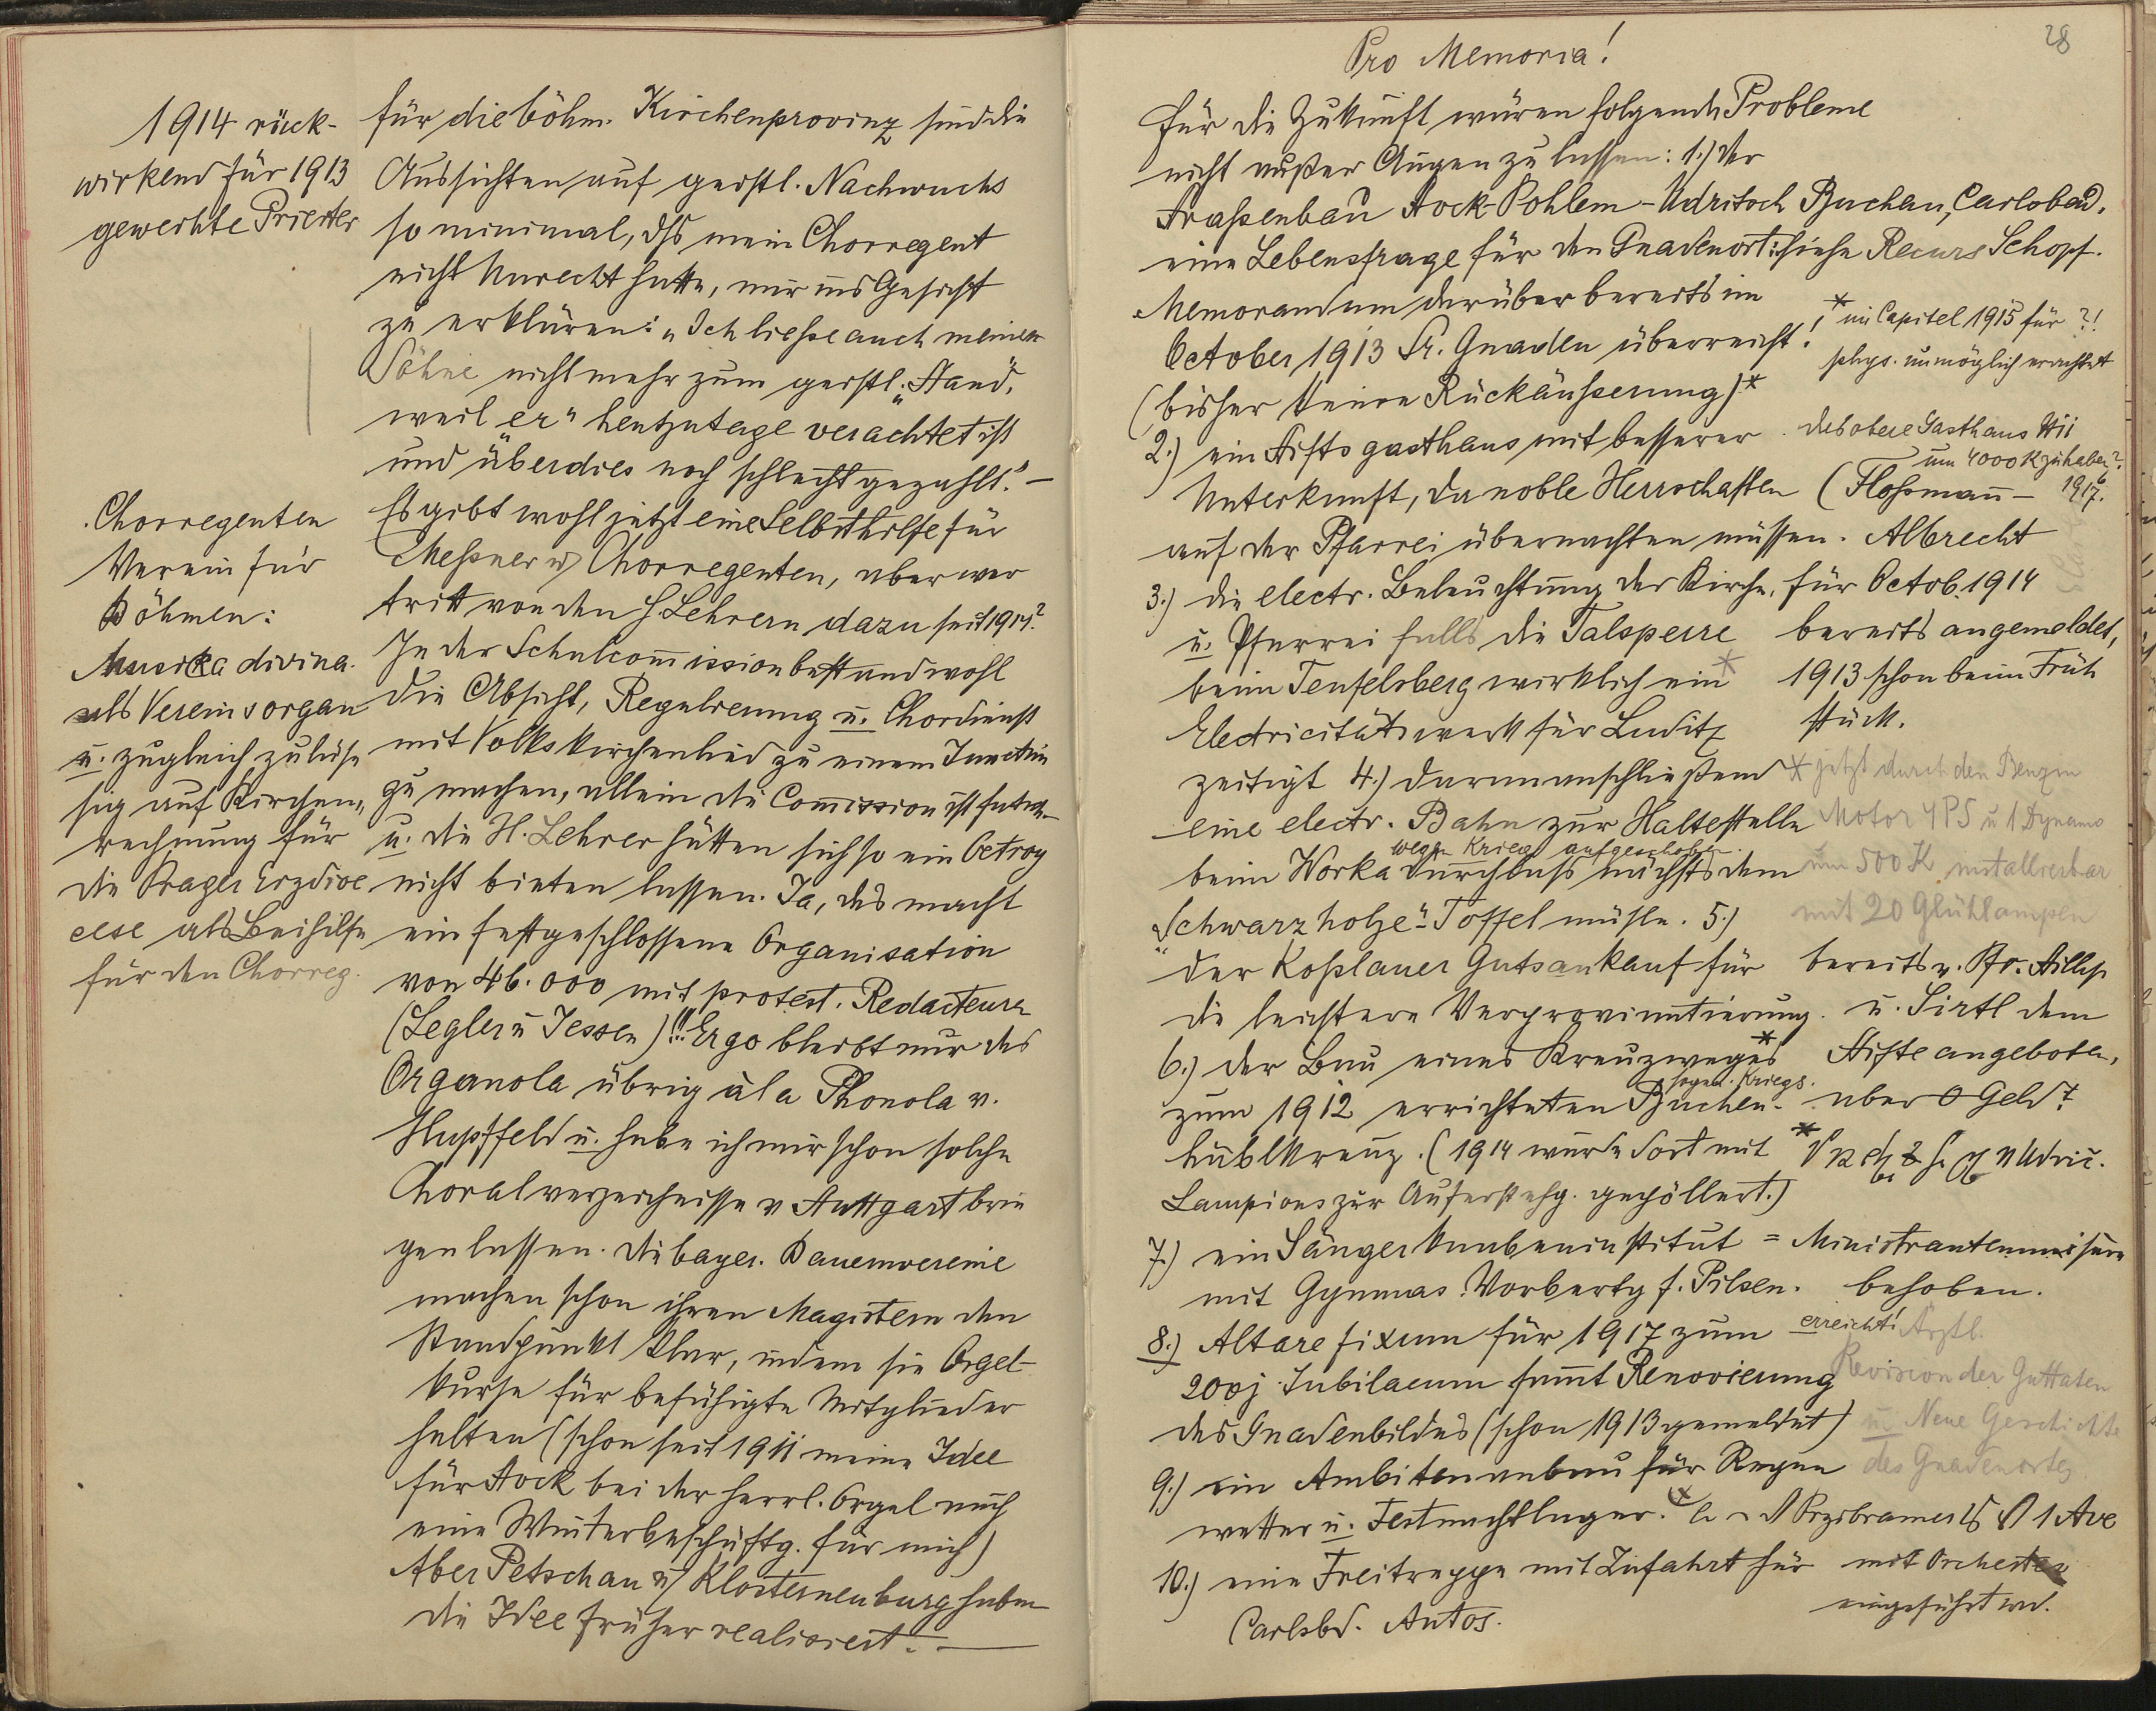 1914 rück-
wirkend für 1913
geweihte Priester
Chorregenten
Verein für
Böhmen:
Musica divina
als Vereinsorgan
u. zugleich zuläs-
sig auf Kirchen-
rechnung für
die Prager Erzdioe
cese als Beihilfe
für den Chorreg.
für die böhm. Kirchenprovinz sind die
Aussichten auf geistl. Nachwuchs
so minimal, dss mein Chorregent
nicht Unrecht hatte, mir ins Gesicht
zu erklären: „Ich ließe auch meinen
Söhne nicht mehr zum geistl. „Stand",
weil „er" heutzutage verachtet ist
und überdies noch schlecht gezahlt." –
Es gibt wohl jetzt eine Selbsthilfe für
Messner u. Chorregenten, aber wer
tritt von den H. Lehrern dazu seit 1914?
In der Schulcommission bestand wohl
die Absicht, Regulierung u. Chordienst
mit Volkskirchenlied zu einem Junctim
zu machen, allein die Commission ist
u. die H. Lehrer hätten sich so ein Octroy
nicht bieten lassen. Ja, das macht
ein festgeschlossene Organisation
von 46.000 mit protest. Redacteuren
(Legler u Jessen)!!! Ergo bleibt nur das
Organola übrig à la Phonola v.
Hupffeld u. habe ich mir schon solche
Choralverzeichnisse v Stuttgart brin
gen lassen. Die bayer. Bauernvereine
machen schon ihren Magistern den
Standpunkt klar, indem sie Orgel-
kurse für befähigte Mitglieder
halten (schon seit 1911 meine Idee
für Stock bei der herrl. Orgel auch
eine Winterbeschäftg. für mich)
Aber Petschau u. Klosterneuburg haben
die Idee früher realisiert. –
28
Pro Memoria!
Für die Zukunft wären folgende Probleme
nicht außer Augen zu lassen: 1.) der
Straßenbau Stock-Pohlem-Udritsch Buchau, Carlsbad,
eine Lebensfrage für den Gnadenort: siehe Recurs Schopf.
Memorandum darüber bereits im
October 1913 Sr. Gnaden überreicht!
* im Capitel 1915 für ?!
phys. unmöglich erachtet
(bisher keine Rückäußerung)*
2.) ein Stiftsgasthaus mit besserer
das obere Gasthaus
um 4000 K zu haben?
Unterkunft, da noble Herrschaften (Floßmann – 1917.
auf der Pfarrei übernachten müssen. Albrecht
3.) die electr. Beleuchtung der Kirche, für Octob. 1914
u. Pfarrei falls die Talsperre bereits angemeldet,
beim Teufelsberg wirklich ein* 1913 schon beim Früh
Electricitätswerk für Luditz stück.
zeitigt 4.) daran anschließend * jetzt durch den Benzin
eine electr. Bahn zur Haltestelle Motor 4 PS u 1 Dynamo
wegen Krieg aufgeschoben.
beim Worka Durchlass nächst dem um 500 K installierbar
„Schwarzholze"-Toffelmühle. 5.) mit 20 Glühlampen
der Koslauer Gutsankauf für bereits v. Br. Hillep
die leichtere Verproviantierung. u. Sirtl dem
6.) der Bau eines Kreuzweges* Stifte angeboten,
sogen. Kriegs.
zum 1912 errichteten Buchen- aber 0 Geld?
hüblkreuz. (1914 wurde dort mit
Lampions zur Auferstehg. gepöllert.)
7.) ein Sängerknabeninstitut = Ministrantenmisere
mit Gymnas. Vorbertg f. Pilsen. behoben.
8.) Altare fixum für 1917 zum erreicht! Ärztl.
200j. Jubilaeum samt Renovierung Revision der Guttaten
des Gnadenbildes (schon 1913 gemeldet) u. Neue Geschichte
9.) ein Ambitenanbau für Regen des Gnadenortes
wetter u. Festnachtlager. Przibramer 1 Ave
10.) eine Freitreppe mit Zufahrt für mit Orchester
Carlsbd. Autos. eingeführt wd.